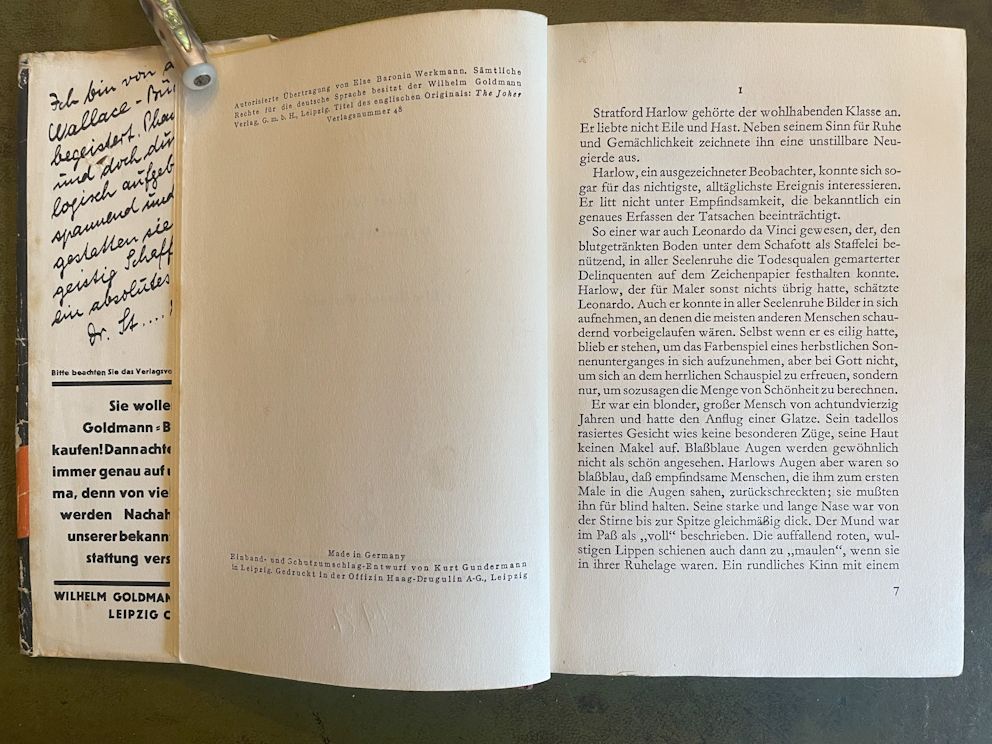 Ich bin von
Wallace-
begeistert.
und doch
logisch
spannend und
gestatten sie
geistig
ein absolutes
Dr. St....
Bitte beachten Sie das
Sie
Goldmann-
kaufen! Dann
immer genau auf
ma, denn von
werden
unserer
WILHELM
LEIPZIG
Autorisierte Übertragung von Else Baronin Werkmann. Sämtliche
Rechte für die deutsche Sprache besitzt der Wilhelm Goldmann
Verlag, G. m. b. H., Leipzig. Titel des englischen Originals: The Joker
Verlagsnummer 48
Made in Germany
Einband- und Schutzumschlag-Entwurf von Kurt Gundermann
in Leipzig. Gedruckt in der Offizin Haag-Drugulin A-G., Leipzig
I
Stratford Harlow gehörte der wohlhabenden Klasse an.
Er liebte nicht Eile und Hast. Neben seinem Sinn für Ruhe
und Gemächlichkeit zeichnete ihn eine unstillbare Neu-
gierde aus.
Harlow, ein ausgezeichneter Beobachter, konnte sich so-
gar für das nichtigste, alltäglichste Ereignis interessieren.
Er litt nicht unter Empfindsamkeit, die bekanntlich ein
genaues Erfassen der Tatsachen beeinträchtigt.
So einer war auch Leonardo da Vinci gewesen, der, den
blutgetränkten Boden unter dem Schafott als Staffelei be-
nützend, in aller Seelenruhe die Todesqualen gemarterter
Delinquenten auf dem Zeichenpapier festhalten konnte.
Harlow, der für Maler sonst nichts übrig hatte, schätzte
Leonardo. Auch er konnte in aller Seelenruhe Bilder in sich
aufnehmen, an denen die meisten anderen Menschen schau-
dernd vorbeigelaufen wären. Selbst wenn er es eilig hatte,
blieb er stehen, um das Farbenspiel eines herbstlichen Son-
nenunterganges in sich aufzunehmen, aber bei Gott nicht,
um sich an dem herrlichen Schauspiel zu erfreuen, sondern
nur, um sozusagen die Menge von Schönheit zu berechnen.
Er war ein blonder, großer Mensch von achtundvierzig
Jahren und hatte den Anflug einer Glatze. Sein tadellos
rasiertes Gesicht wies keine besonderen Züge, seine Haut
keinen Makel auf. Blaßblaue Augen werden gewöhnlich
nicht als schön angesehen. Harlows Augen aber waren so
blaßblau, daß empfindsame Menschen, die ihm zum ersten
Male in die Augen sahen, zurückschreckten; sie mußten
ihn für blind halten. Seine starke und lange Nase war von
der Stirne bis zur Spitze gleichmäßig dick. Der Mund war
im Paß als „voll“ beschrieben. Die auffallend roten, wul-
stigen Lippen schienen auch dann zu „maulen“, wenn sie
in ihrer Ruhelage waren. Ein rundliches Kinn mit einem
7